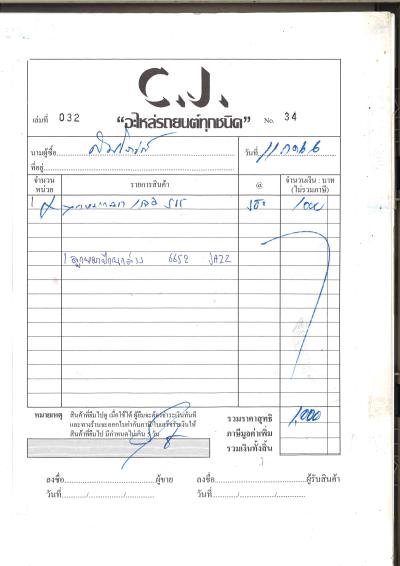 C.J.
เล่มที่ 032 "อะไหล่รถยนต์ทุกชนิด" No. 34
นามผู้ซื้อ วันที่ 11
ที่อยู่
จำนวน หน่วย รายการสินค้า @ จำนวนเงิน : บาท (ไม่รวมภาษี)
1 515 1000
6652 JAZZ
หมายเหตุ สินค้าที่ยืมไปดู เมื่อใช้ได้ ผู้ยืมจะต้องชำระเงินทันที
และทางร้านจะออกใบกำกับภาษีในเสร็จรับเงินให้
สินค้าที่ยืมไป มีกำหนดไม่เกิน วัน
รวมราคาสุทธิ 1,000
ภาษีมูลค่าเพิ่ม
รวมเงินทั้งสิ้น
ลงชื่อ ผู้ขาย ลงชื่อ ผู้รับสินค้า
วันที่ / / วันที่ / /